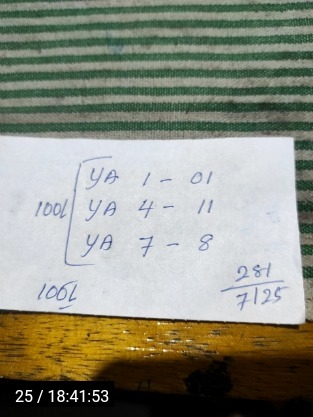 YA 1 - 01
100l YA 4 - 11
YA 7 - 8
100l
281
7125
25 / 18:41:53